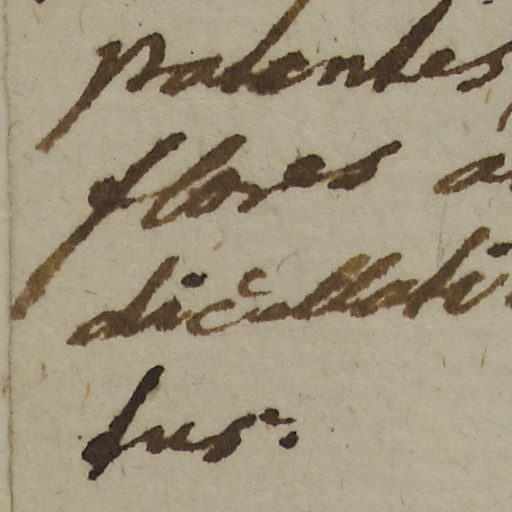 patentes,
flores a
dicellati
sus.